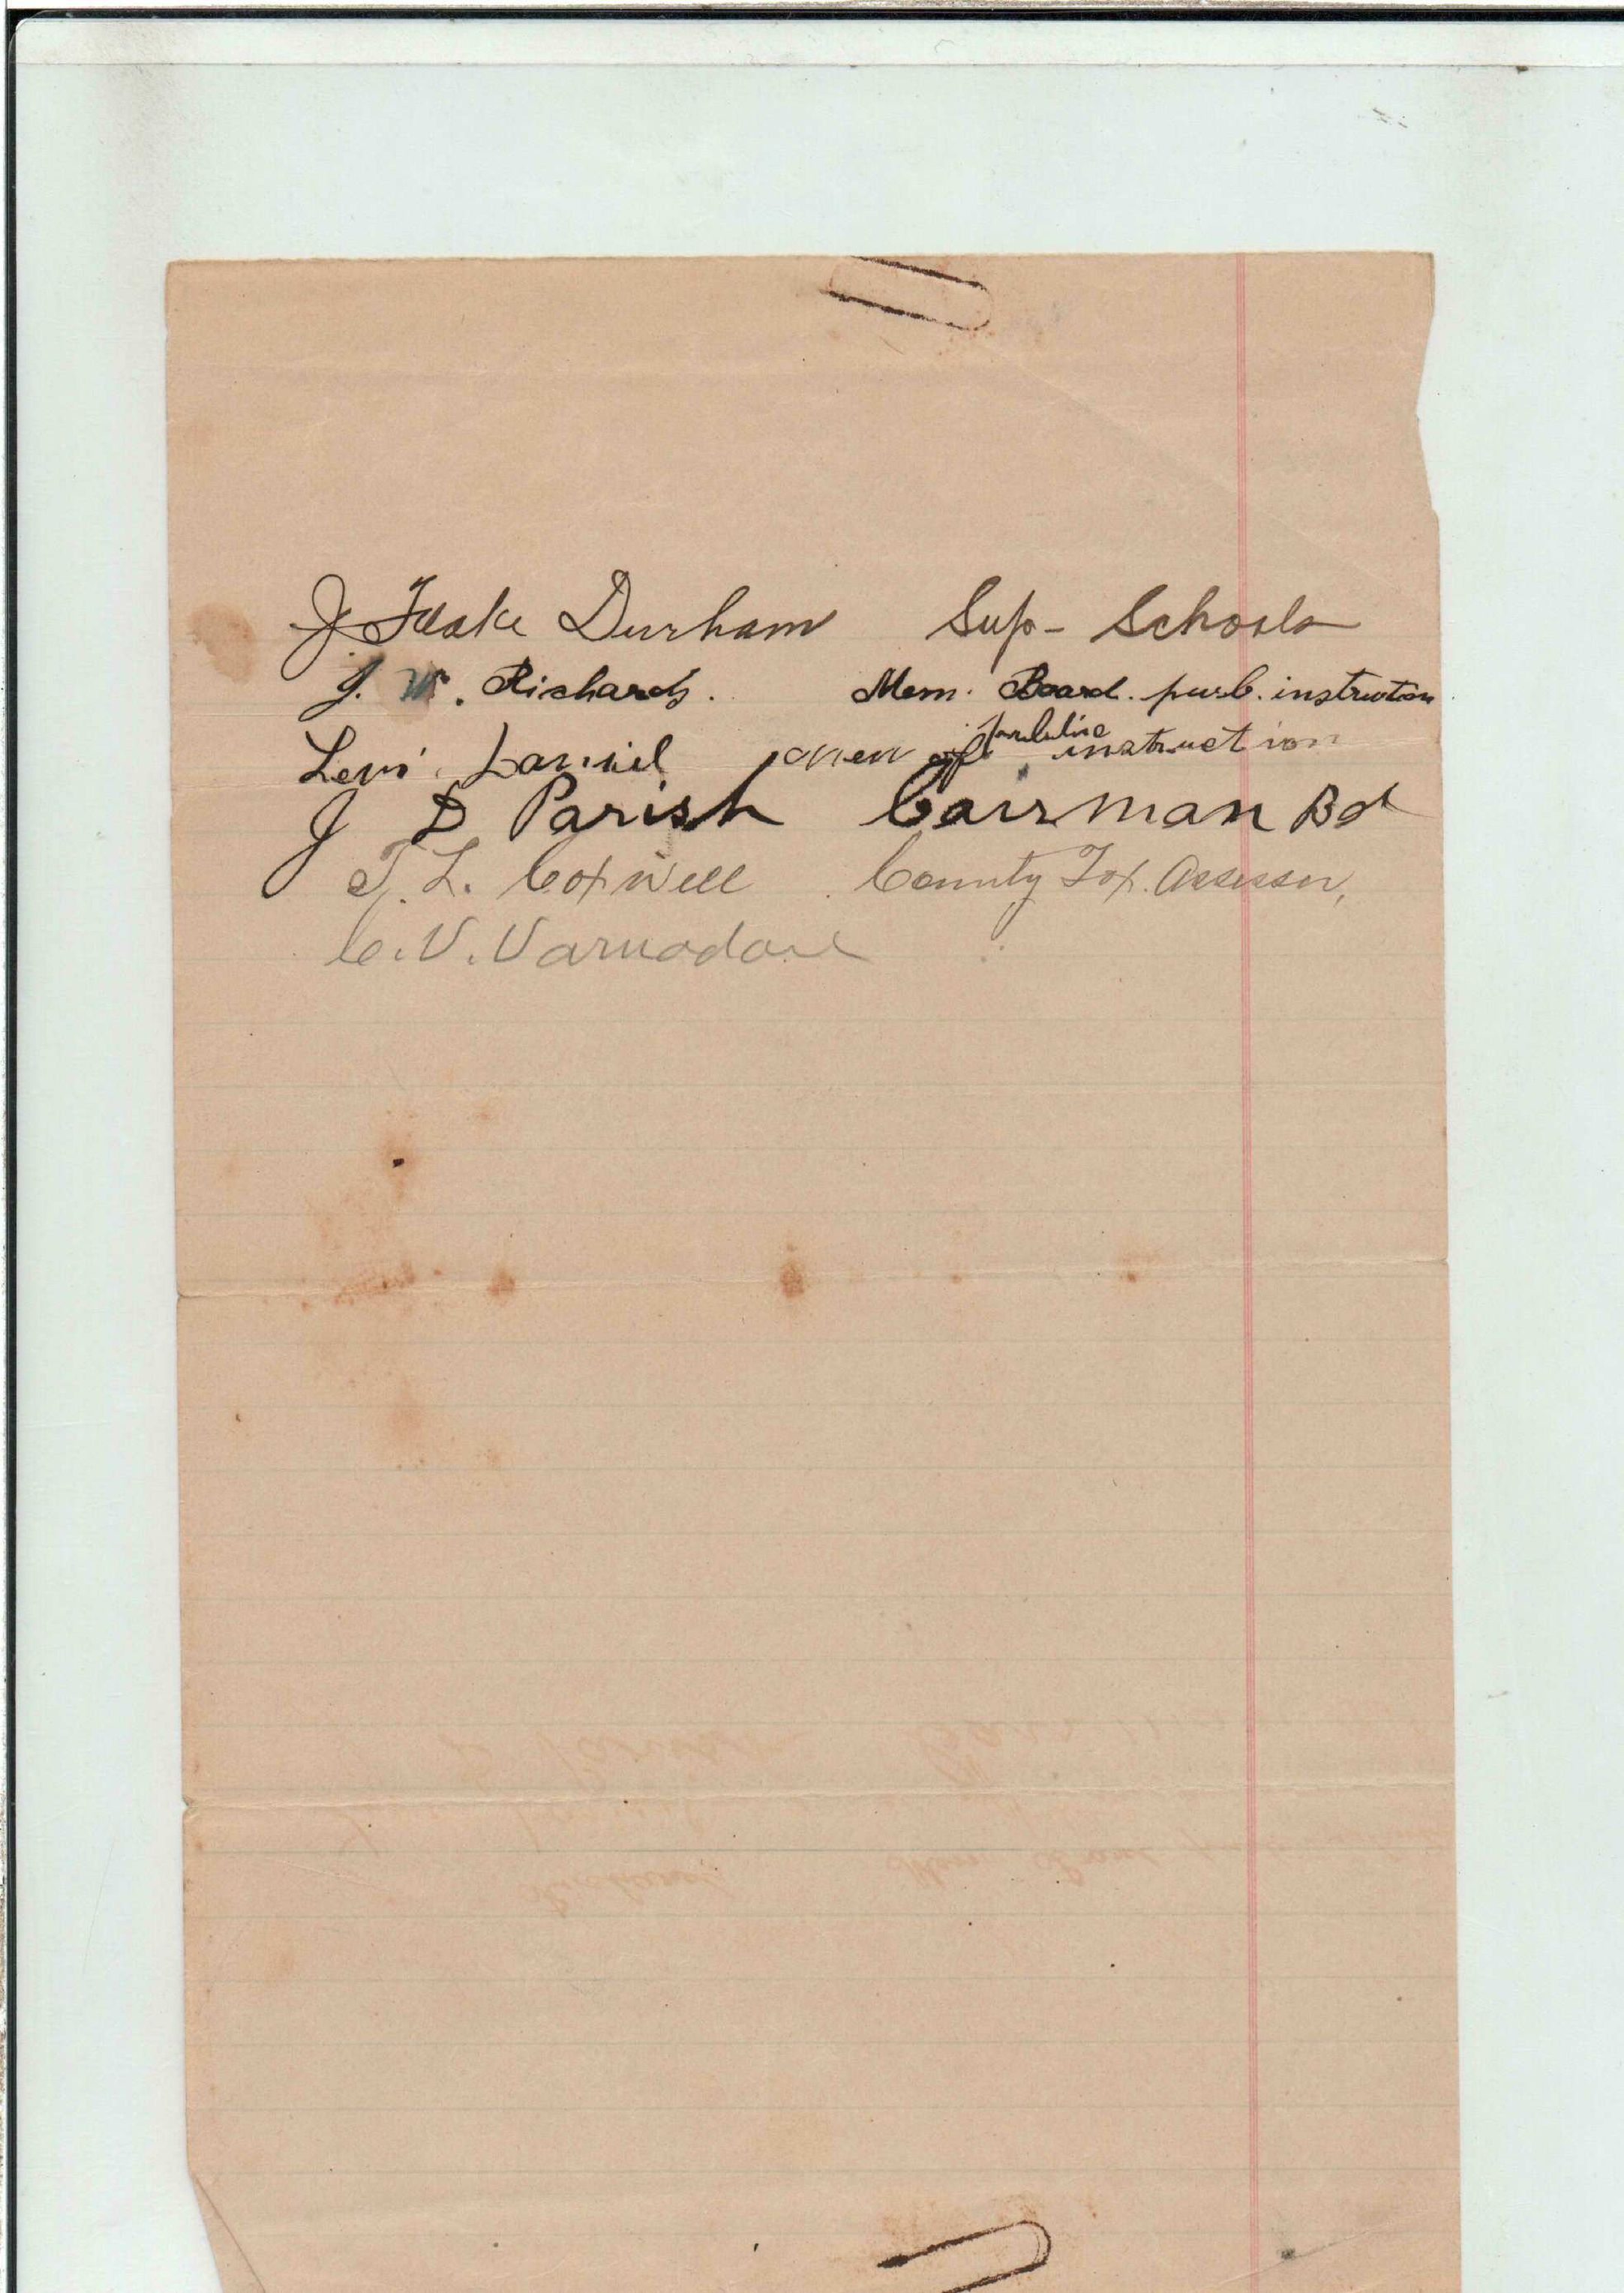 J. Flake Durham Sup- Schools
J. W. Richards. Mem. Board. pub. instruction
Levi Daniel mem of public instruction
J D Parish Cairman Bd
T. L. Cotwell County Tax. Assessor,
C. V. Varnadore